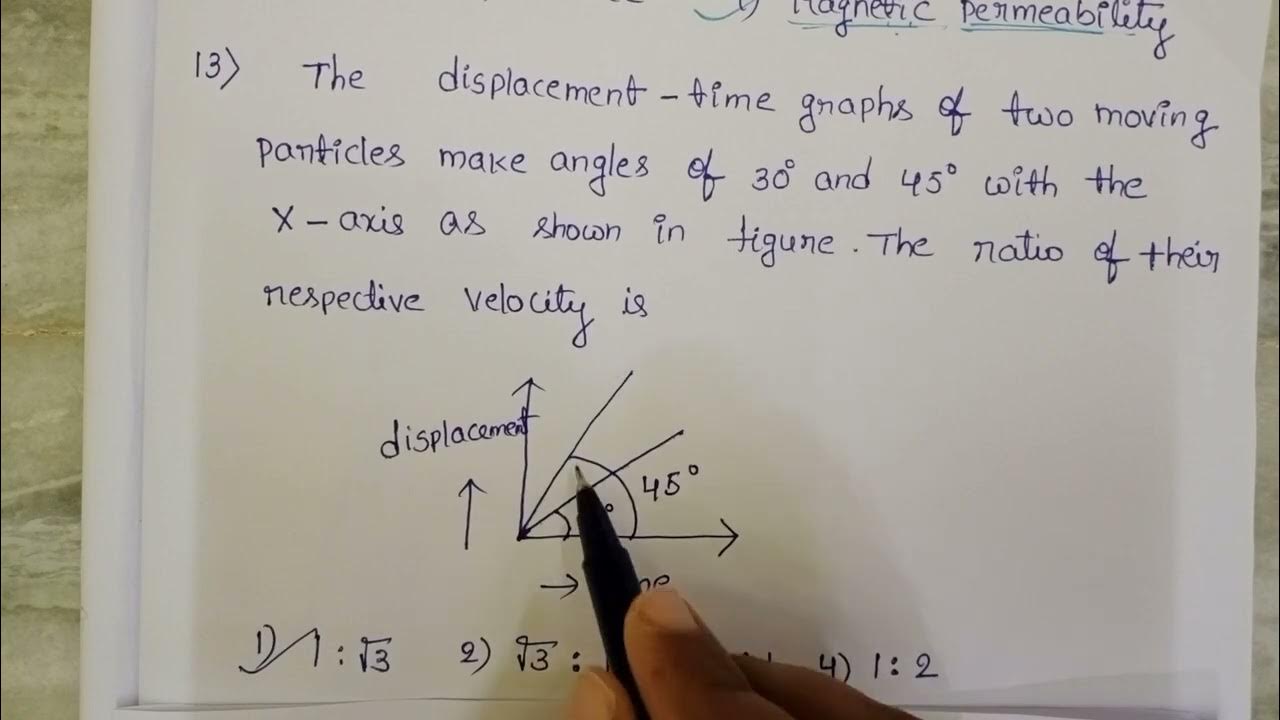 Magnetic Permeability
13) The displacement - time graphs of two moving
particles make angles of 30° and 45° with the
X - axis as shown in figure. The ratio of their
respective velocity is
displacement
45°
1) 1 : √3 2) √3 : 4) 1 : 2